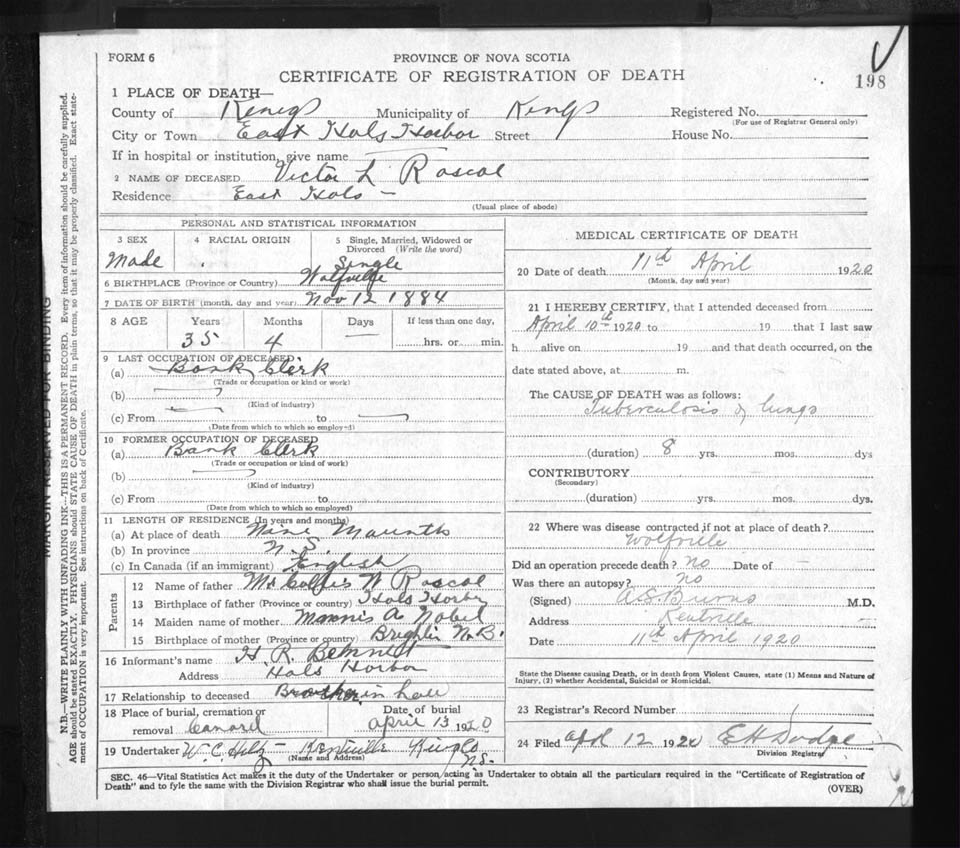 FORM 6
PROVINCE OF NOVA SCOTIA
CERTIFICATE OF REGISTRATION OF DEATH
198
1 PLACE OF DEATH—
County of Kings Municipality of Kings Registered No.
(For use of Registrar General only)
City or Town East Hals Harbor Street House No.
If in hospital or institution, give name
2 NAME OF DECEASED Victor L Rascal
Residence East Hals —
(Usual place of abode)
PERSONAL AND STATISTICAL INFORMATION
3 SEX
Made
4 RACIAL ORIGIN
5 Single, Married, Widowed or Divorced (Write the word)
Single
6 BIRTHPLACE (Province or Country) Wolfville
7 DATE OF BIRTH (month, day and year) Nov 12 1884
8 AGE Years Months Days If less than one day,
35 4 — hrs. or min.
9 LAST OCCUPATION OF DECEASED
(a) Bank Clerk
(Trade or occupation or kind or work)
(b)
(Kind of industry)
(c) From to
(Date from which to which so employed)
10 FORMER OCCUPATION OF DECEASED
(a) Bank Clerk
(Trade or occupation or kind of work)
(b)
(Kind of industry)
(c) From to
(Date from which to which so employed)
11 LENGTH OF RESIDENCE (In years and months)
(a) At place of death Nine Maunths
(b) In province N.S.
(c) In Canada (if an immigrant) English
Parents
12 Name of father Mr W Rascal
13 Birthplace of father (Province or country) Hals Horber
14 Maiden name of mother Minnis A Nobel
15 Birthplace of mother (Province or country) N.B.
16 Informant's name H. R. Bennett
Address Hals Harbor
17 Relationship to deceased Brother in law
18 Place of burial, cremation or removal Canard
Date of burial April 13 1920
19 Undertaker W. C. Hiltz — Kentville Kings Co N.S.
(Name and Address)
MEDICAL CERTIFICATE OF DEATH
20 Date of death 11th April 1920
(Month, day and year)
21 I HEREBY CERTIFY, that I attended deceased from
April 10th 1920 to 19 that I last saw
h alive on 19 and that death occurred, on the
date stated above, at m.
The CAUSE OF DEATH was as follows:
Tuberculosis of lungs
(duration) 8 yrs. mos. dys
CONTRIBUTORY
(Secondary)
(duration) yrs. mos. dys.
22 Where was disease contracted if not at place of death?
Wolfville
Did an operation precede death? No Date of —
Was there an autopsy? No
(Signed) A.S. Burns M.D.
Address Kentville
Date 11th April 1920
State the Disease causing Death, or in death from Violent Causes, state (1) Means and Nature of
Injury, (2) whether Accidental, Suicidal or Homicidal.
23 Registrar's Record Number
24 Filed April 12 1920 E H Dodge
Division Registrar
SEC. 46—Vital Statistics Act makes it the duty of the Undertaker or person acting as Undertaker to obtain all the particulars required in the "Certificate of Registration of
Death" and to fyle the same with the Division Registrar who shall issue the burial permit.
(OVER)
MARGIN RESERVED FOR BINDING
N.B.—WRITE PLAINLY WITH UNFADING INK—THIS IS A PERMANENT RECORD. Every item of information should be carefully supplied.
AGE should be stated EXACTLY. PHYSICIANS should STATE CAUSE OF DEATH in plain terms, so that it may be properly classified. Exact state-
ment of OCCUPATION is very important. See instructions on back of Certificate.